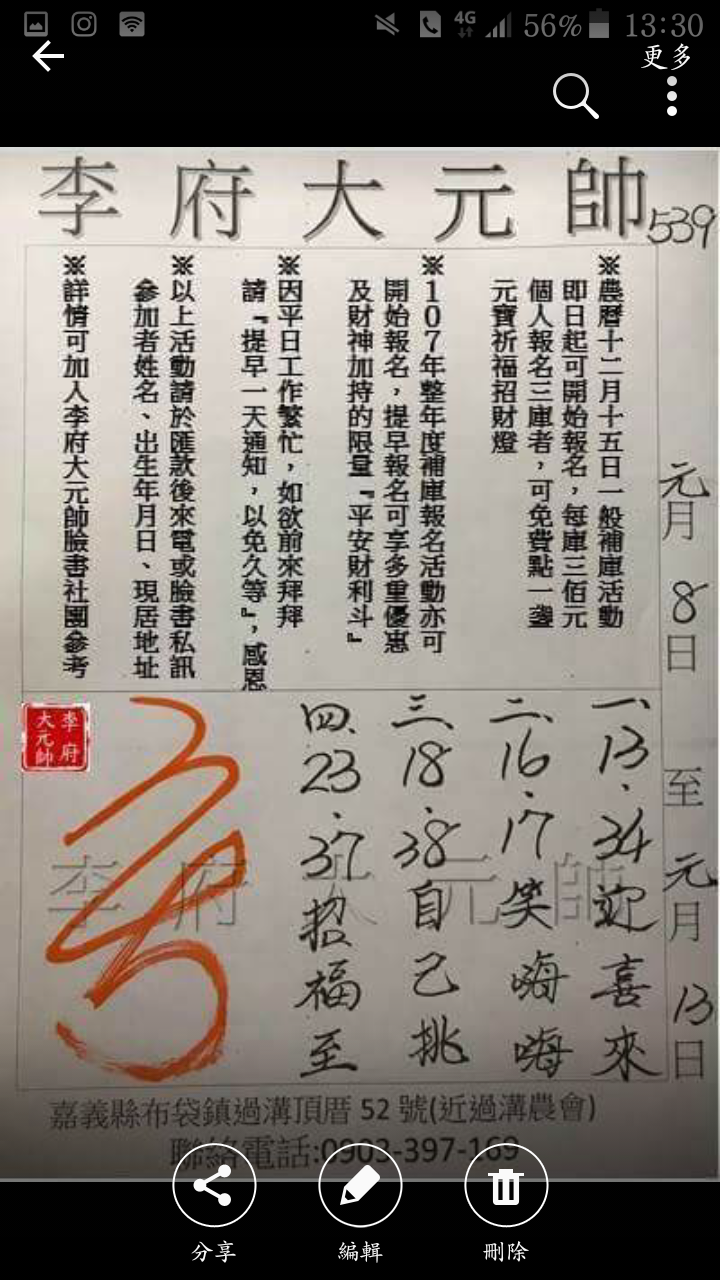 4G 56% 13:30
更多
李府大元帥
539
※農曆十二月十五日一般補庫活動
即日起可開始報名，每庫三佰元
個人報名三庫者，可免費點一盞
元寶祈福招財燈
※107年整年度補庫報名活動亦可
開始報名，提早報名可享多重優惠
及財神加持的限量『平安財利斗』
※因平日工作繁忙，如欲前來拜拜
請『提早一天通知，以免久等』，感恩
※以上活動請於匯款後來電或臉書私訊
參加者姓名、出生年月日、現居地址
※詳情可加入李府大元帥臉書社團參考
元月8日至元月13日
一、13.34迎喜來
二、16.17笑嗨嗨
三、18.38自己挑
四、23.37招福至
李府
大元帥
李府大元帥
嘉義縣布袋鎮過溝頂厝 52 號(近過溝農會)
聯絡電話:0903-397-169
分享
編輯
刪除